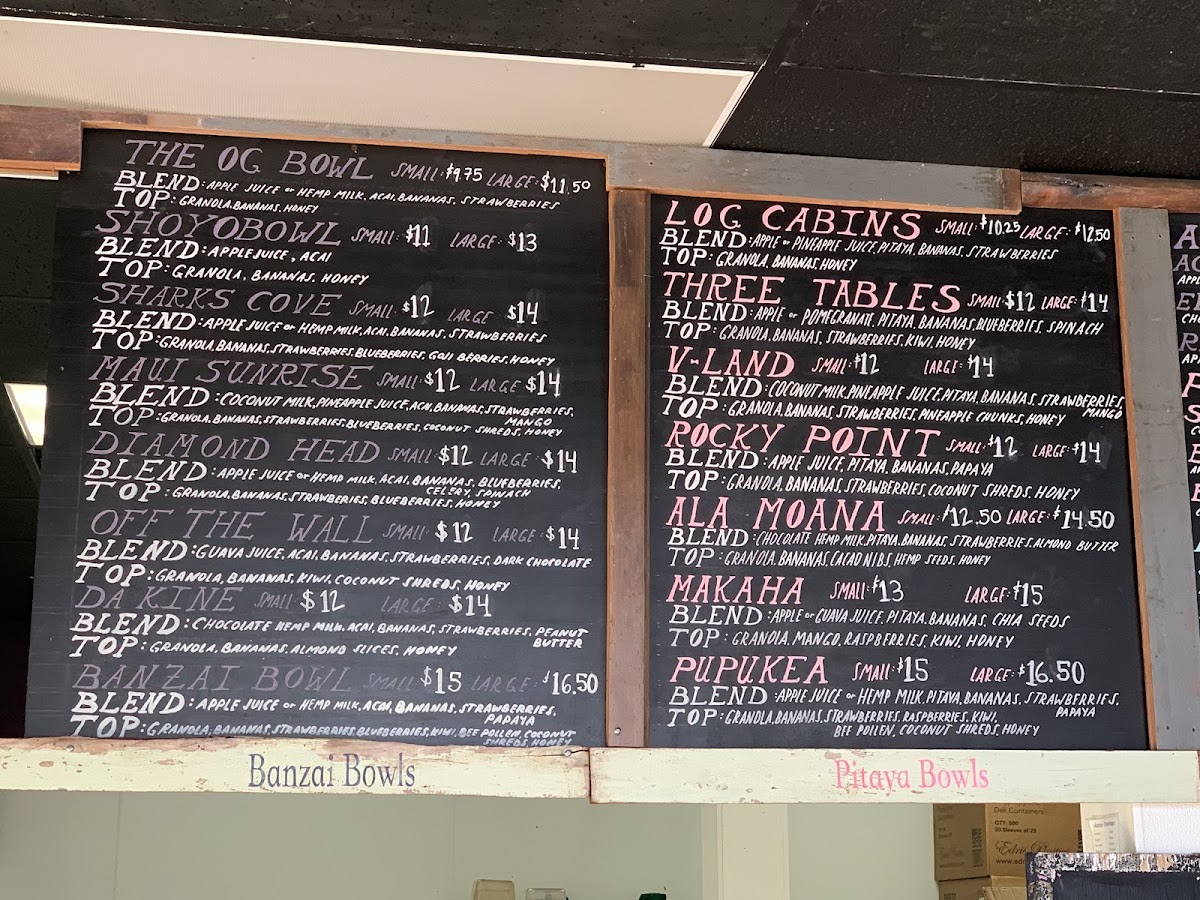 THE OG BOWL SMALL: $9.75 LARGE: $11.50
BLEND: APPLE JUICE or HEMP MILK, ACAI, BANANAS, STRAWBERRIES
TOP: GRANOLA, BANANAS, HONEY
SHOYOBOWL SMALL: $11 LARGE: $13
BLEND: APPLE JUICE, ACAI
TOP: GRANOLA, BANANAS, HONEY
SHARKS COVE SMALL: $12 LARGE: $14
BLEND: APPLE JUICE or HEMP MILK, ACAI, BANANAS, STRAWBERRIES
TOP: GRANOLA, BANANAS, STRAWBERRIES, BLUEBERRIES, GOJI BERRIES, HONEY
MAUI SUNRISE SMALL: $12 LARGE $14
BLEND: COCONUT MILK, PINEAPPLE JUICE, ACAI, BANANAS, STRAWBERRIES,
MANGO
TOP: GRANOLA, BANANAS, STRAWBERRIES, BLUEBERRIES, COCONUT SHREDS, HONEY
DIAMOND HEAD SMALL: $12 LARGE: $14
BLEND: APPLE JUICE or HEMP MILK, ACAI, BANANAS, BLUEBERRIES,
CELERY, SPINACH
TOP: GRANOLA, BANANAS, STRAWBERIES, BLUEBERRIES, HONEY
OFF THE WALL SMALL: $12 LARGE: $14
BLEND: GUAVA JUICE, ACAI, BANANAS, STRAWBERRIES, DARK CHOCOLATE
TOP: GRANOLA, BANANAS, KIWI, COCONUT SHREDS, HONEY
DA KINE SMALL $12 LARGE: $14
BLEND: CHOCOLATE HEMP MILK, ACAI, BANANAS, STRAWBERRIES, PEANUT
BUTTER
TOP: GRANOLA, BANANAS, ALMOND SLICES, HONEY
BANZAI BOWL SMALL: $15 LARGE: $16.50
BLEND: APPLE JUICE or HEMP MILK, ACAI, BANANAS, STRAWBERRIES,
PAPAYA
TOP: GRANOLA, BANANAS, STRAWBERRIES, BLUEBERRIES, KIWI, BEE POLLEN, COCONUT
SHREDS, HONEY
Banzai Bowls
LOG CABINS SMALL: $10.25 LARGE: $12.50
BLEND: APPLE or PINEAPPLE JUICE, PITAYA, BANANAS, STRAWBERRIES
TOP: GRANOLA, BANANAS, HONEY
THREE TABLES SMALL: $12 LARGE: $14
BLEND: APPLE or POMEGRANATE, PITAYA, BANANAS, BLUEBERRIES, SPINACH
TOP: GRANOLA, BANANAS, STRAWBERRIES, KIWI, HONEY
V-LAND SMALL: $12 LARGE: $14
BLEND: COCONUT MILK, PINEAPPLE JUICE, PITAYA, BANANAS, STRAWBERRIES,
MANGO
TOP: GRANOLA, BANANAS, STRAWBERRIES, PINEAPPLE CHUNKS, HONEY
ROCKY POINT SMALL: $12 LARGE: $14
BLEND: APPLE JUICE, PITAYA, BANANAS, PAPAYA
TOP: GRANOLA, BANANAS, STRAWBERRIES, COCONUT SHREDS, HONEY
ALA MOANA SMALL: $12.50 LARGE: $14.50
BLEND: CHOCOLATE HEMP MILK, PITAYA, BANANAS, STRAWBERRIES, ALMOND BUTTER
TOP: GRANOLA, BANANAS, CACAO NIBS, HEMP SEEDS, HONEY
MAKAHA SMALL: $13 LARGE: $15
BLEND: APPLE or GUAVA JUICE, PITAYA, BANANAS, CHIA SEEDS
TOP: GRANOLA, MANGO, RASPBERRIES, KIWI, HONEY
PUPUKEA SMALL: $15 LARGE: $16.50
BLEND: APPLE JUICE or HEMP MILK, PITAYA, BANANAS, STRAWBERRIES,
PAPAYA
TOP: GRANOLA, BANANAS, STRAWBERRIES, RASPBERRIES, KIWI,
BEE POLLEN, COCONUT SHREDS, HONEY
Pitaya Bowls
Deli Containers
QTY: 500
20 Sleeves of 25